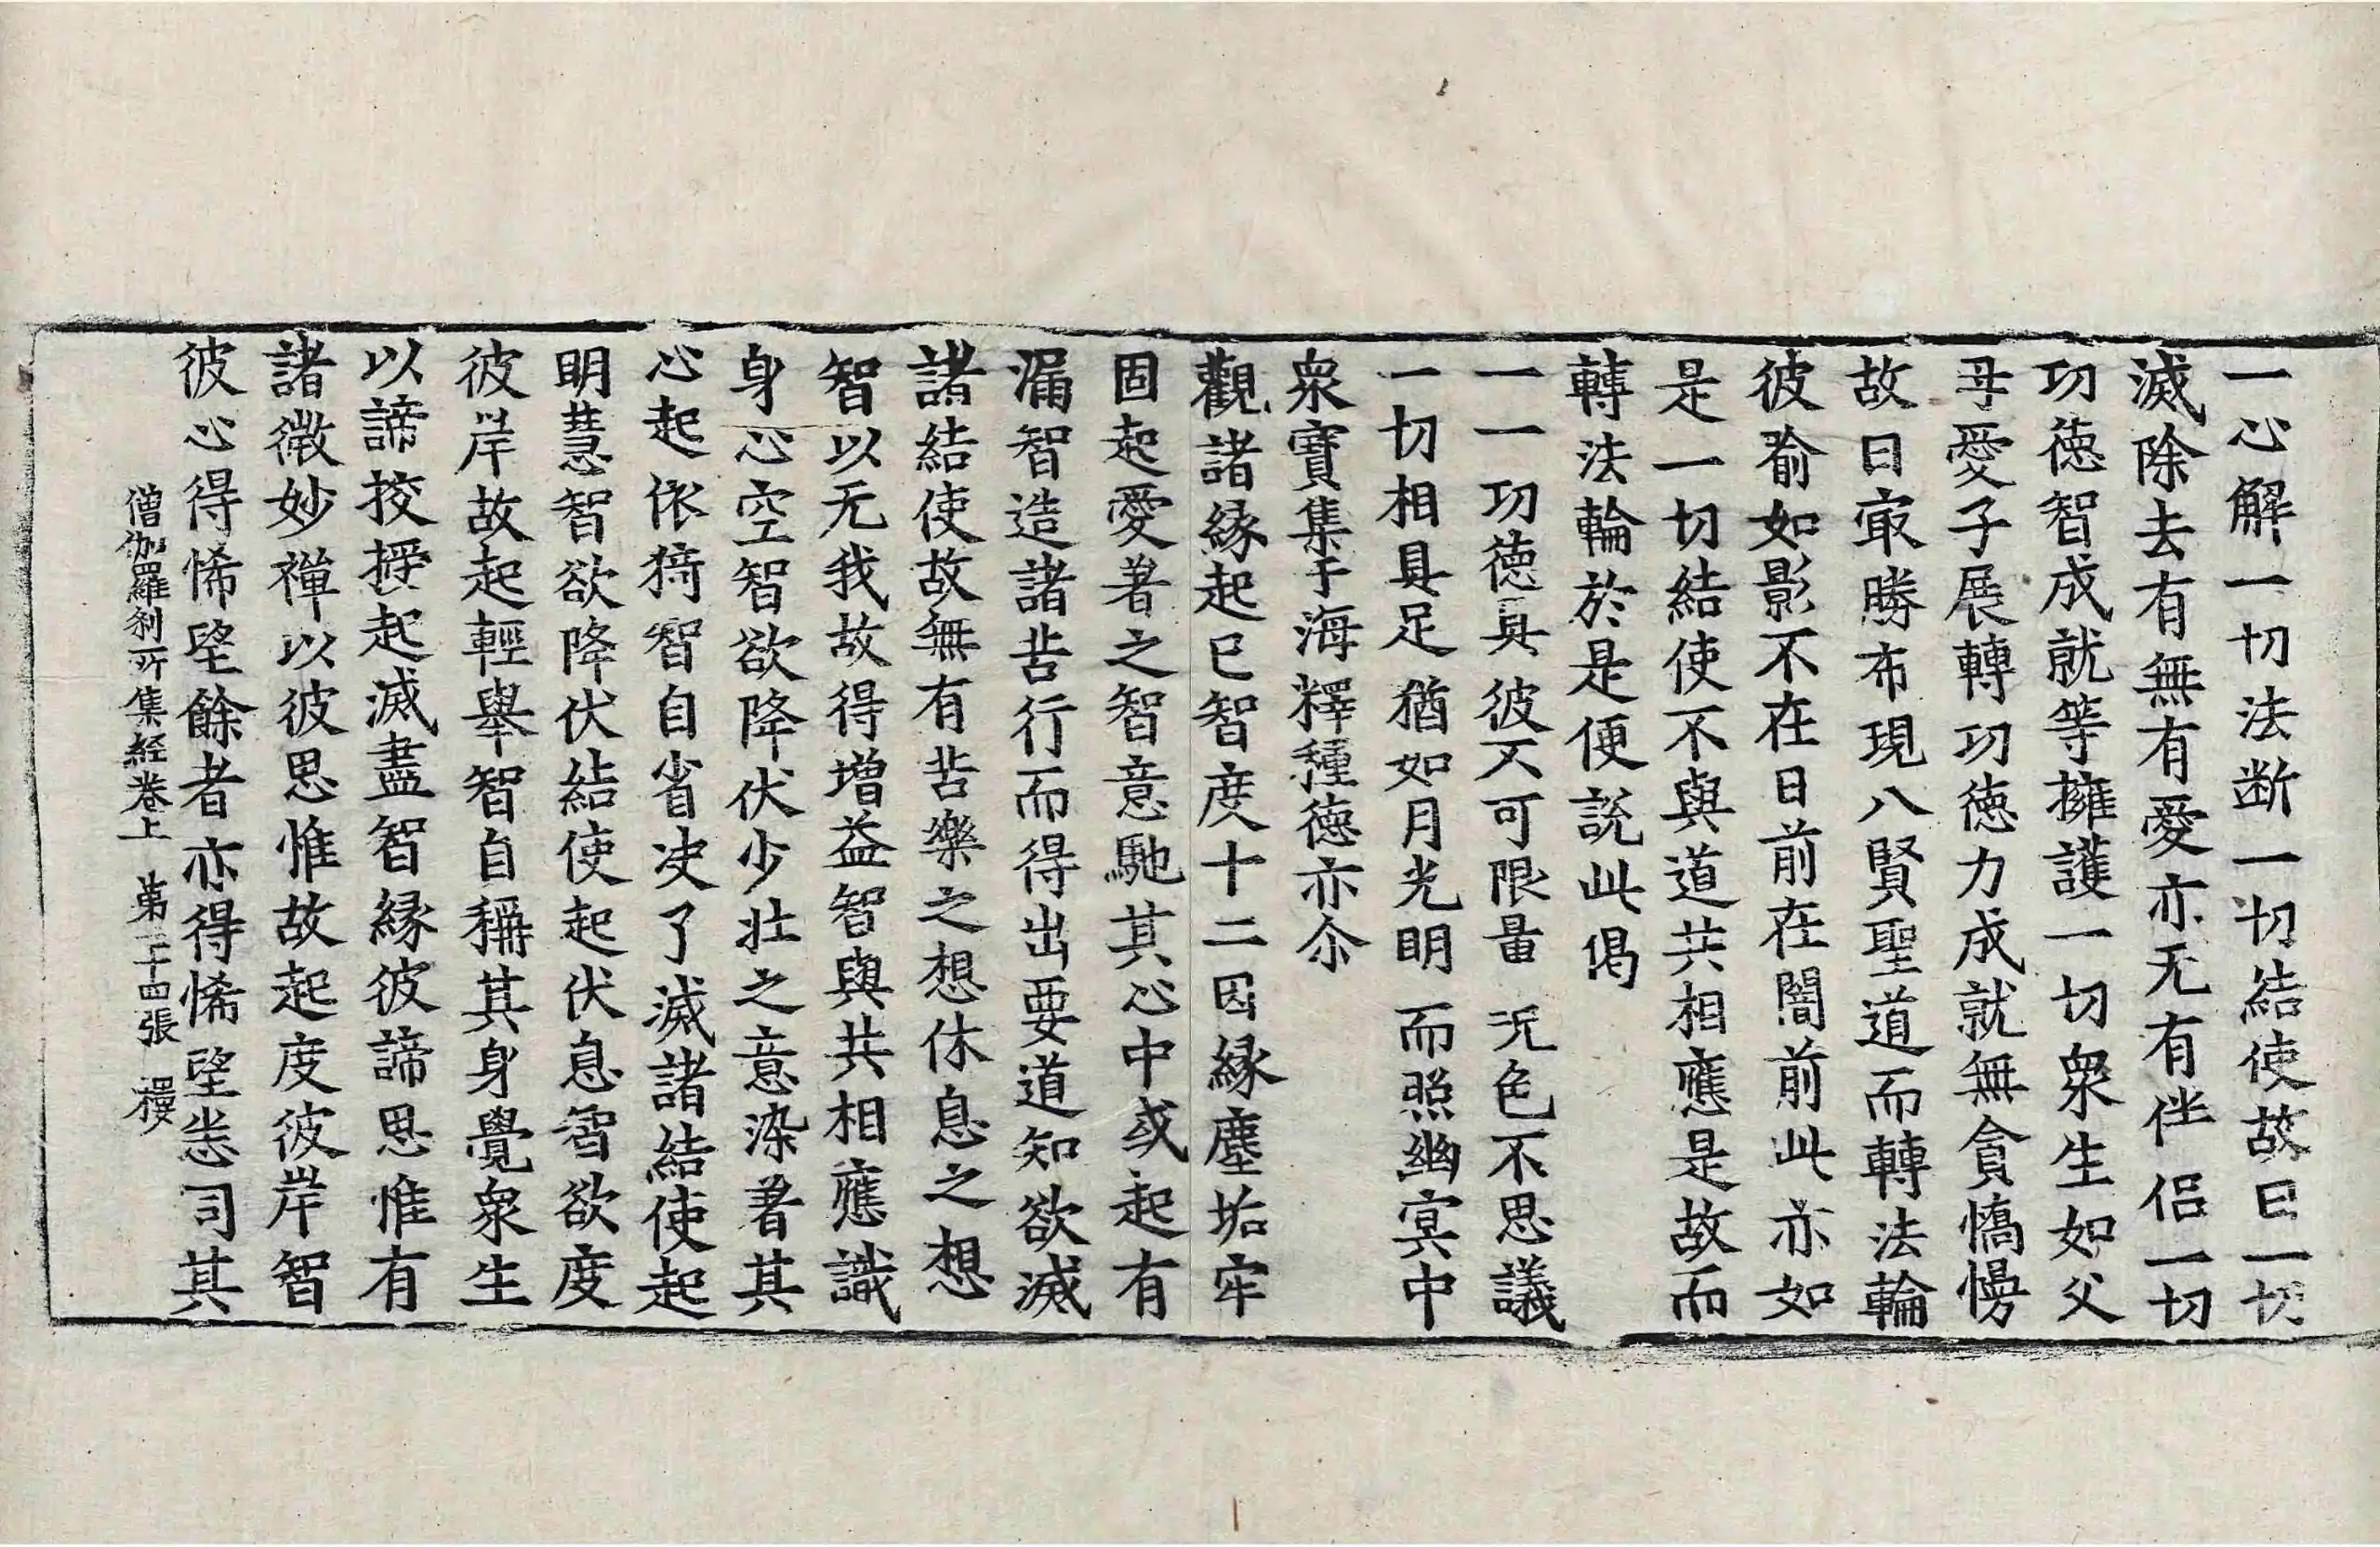 一心解一切法断一切結使故曰一切
滅除去有無有愛亦无有伴侶一切
功德智成就等擁護一切衆生如父
母愛子展轉功德力成就無貪憍慢
故曰㝡勝布現八賢聖道而轉法輪
彼喻如影不在日前在闇前此亦如
是一切結使不與道共相應是故而
轉法輪於是便說此偈
一一功德具 彼不可限量 无色不思議
一切相具足 猶如月光明 而照幽冥中
衆寶集于海 釋種德亦尒
觀諸緣起已智度十二因緣塵垢牢
固起愛著之智意馳其心中或起有
漏智造諸苦行而得出要道知欲滅
諸結使故無有苦樂之想休息之想
智以无我故得增益智與共相應識
身心空智欲降伏少壯之意染著其
心起依猗智自省决了滅諸結使起
明慧智欲降伏結使起伏息智欲度
彼岸故起輕舉智自稱其身覺衆生
以諦挍捋起滅盡智緣彼諦思惟有
諸微妙禪以彼思惟故起度彼岸智
彼心得悕望餘者亦得悕望恙司其
僧伽羅刹所集経卷上 第二十四張 禝